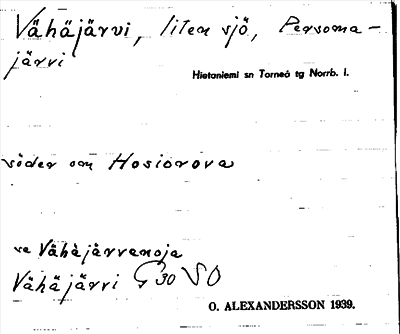 Vähäjärvi, liten sjö, Persoma-
järvi
Hietaniemi sn Torneå tg Norrb. l.
söder om Hosiorova
se Vähäjärvenoja
Vähäjärvi G 30 SO
O. ALEXANDERSSON 1939.